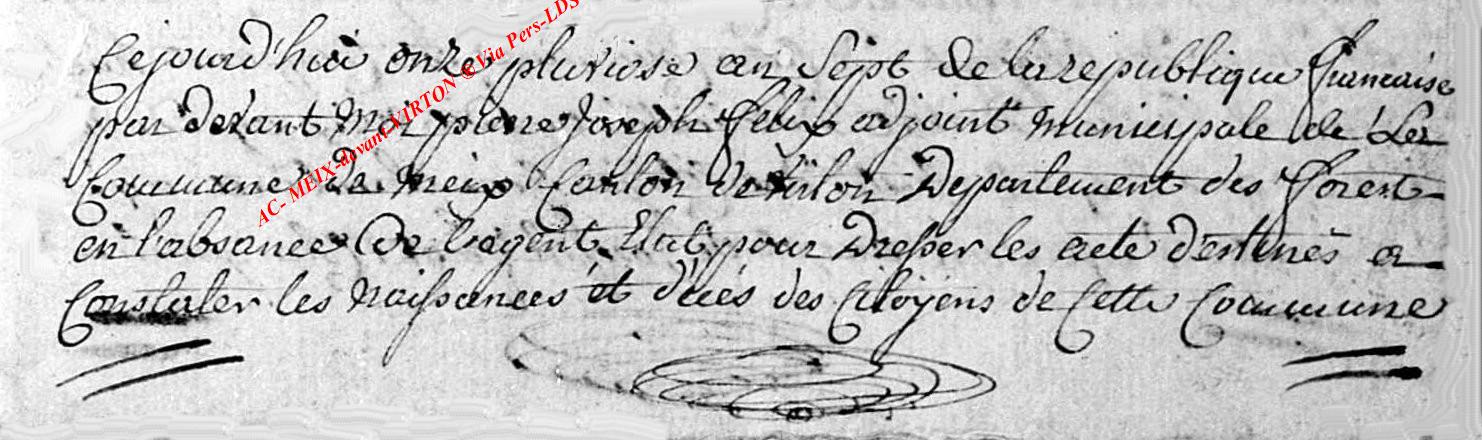 Cejourd'hui onze pluviose an Sept de la republique francaise
par devant Moi pierre Joseph felix adjoint municipale de La
Commune de Meix Canton de Departement des forest
en l'absance de l'agent pour Dresser les acte destinés a
Constater les Naissances et décés des Citoyens de Cette Commune
AC- MEIX-devant-VIRTON ©Via Pers-LDS